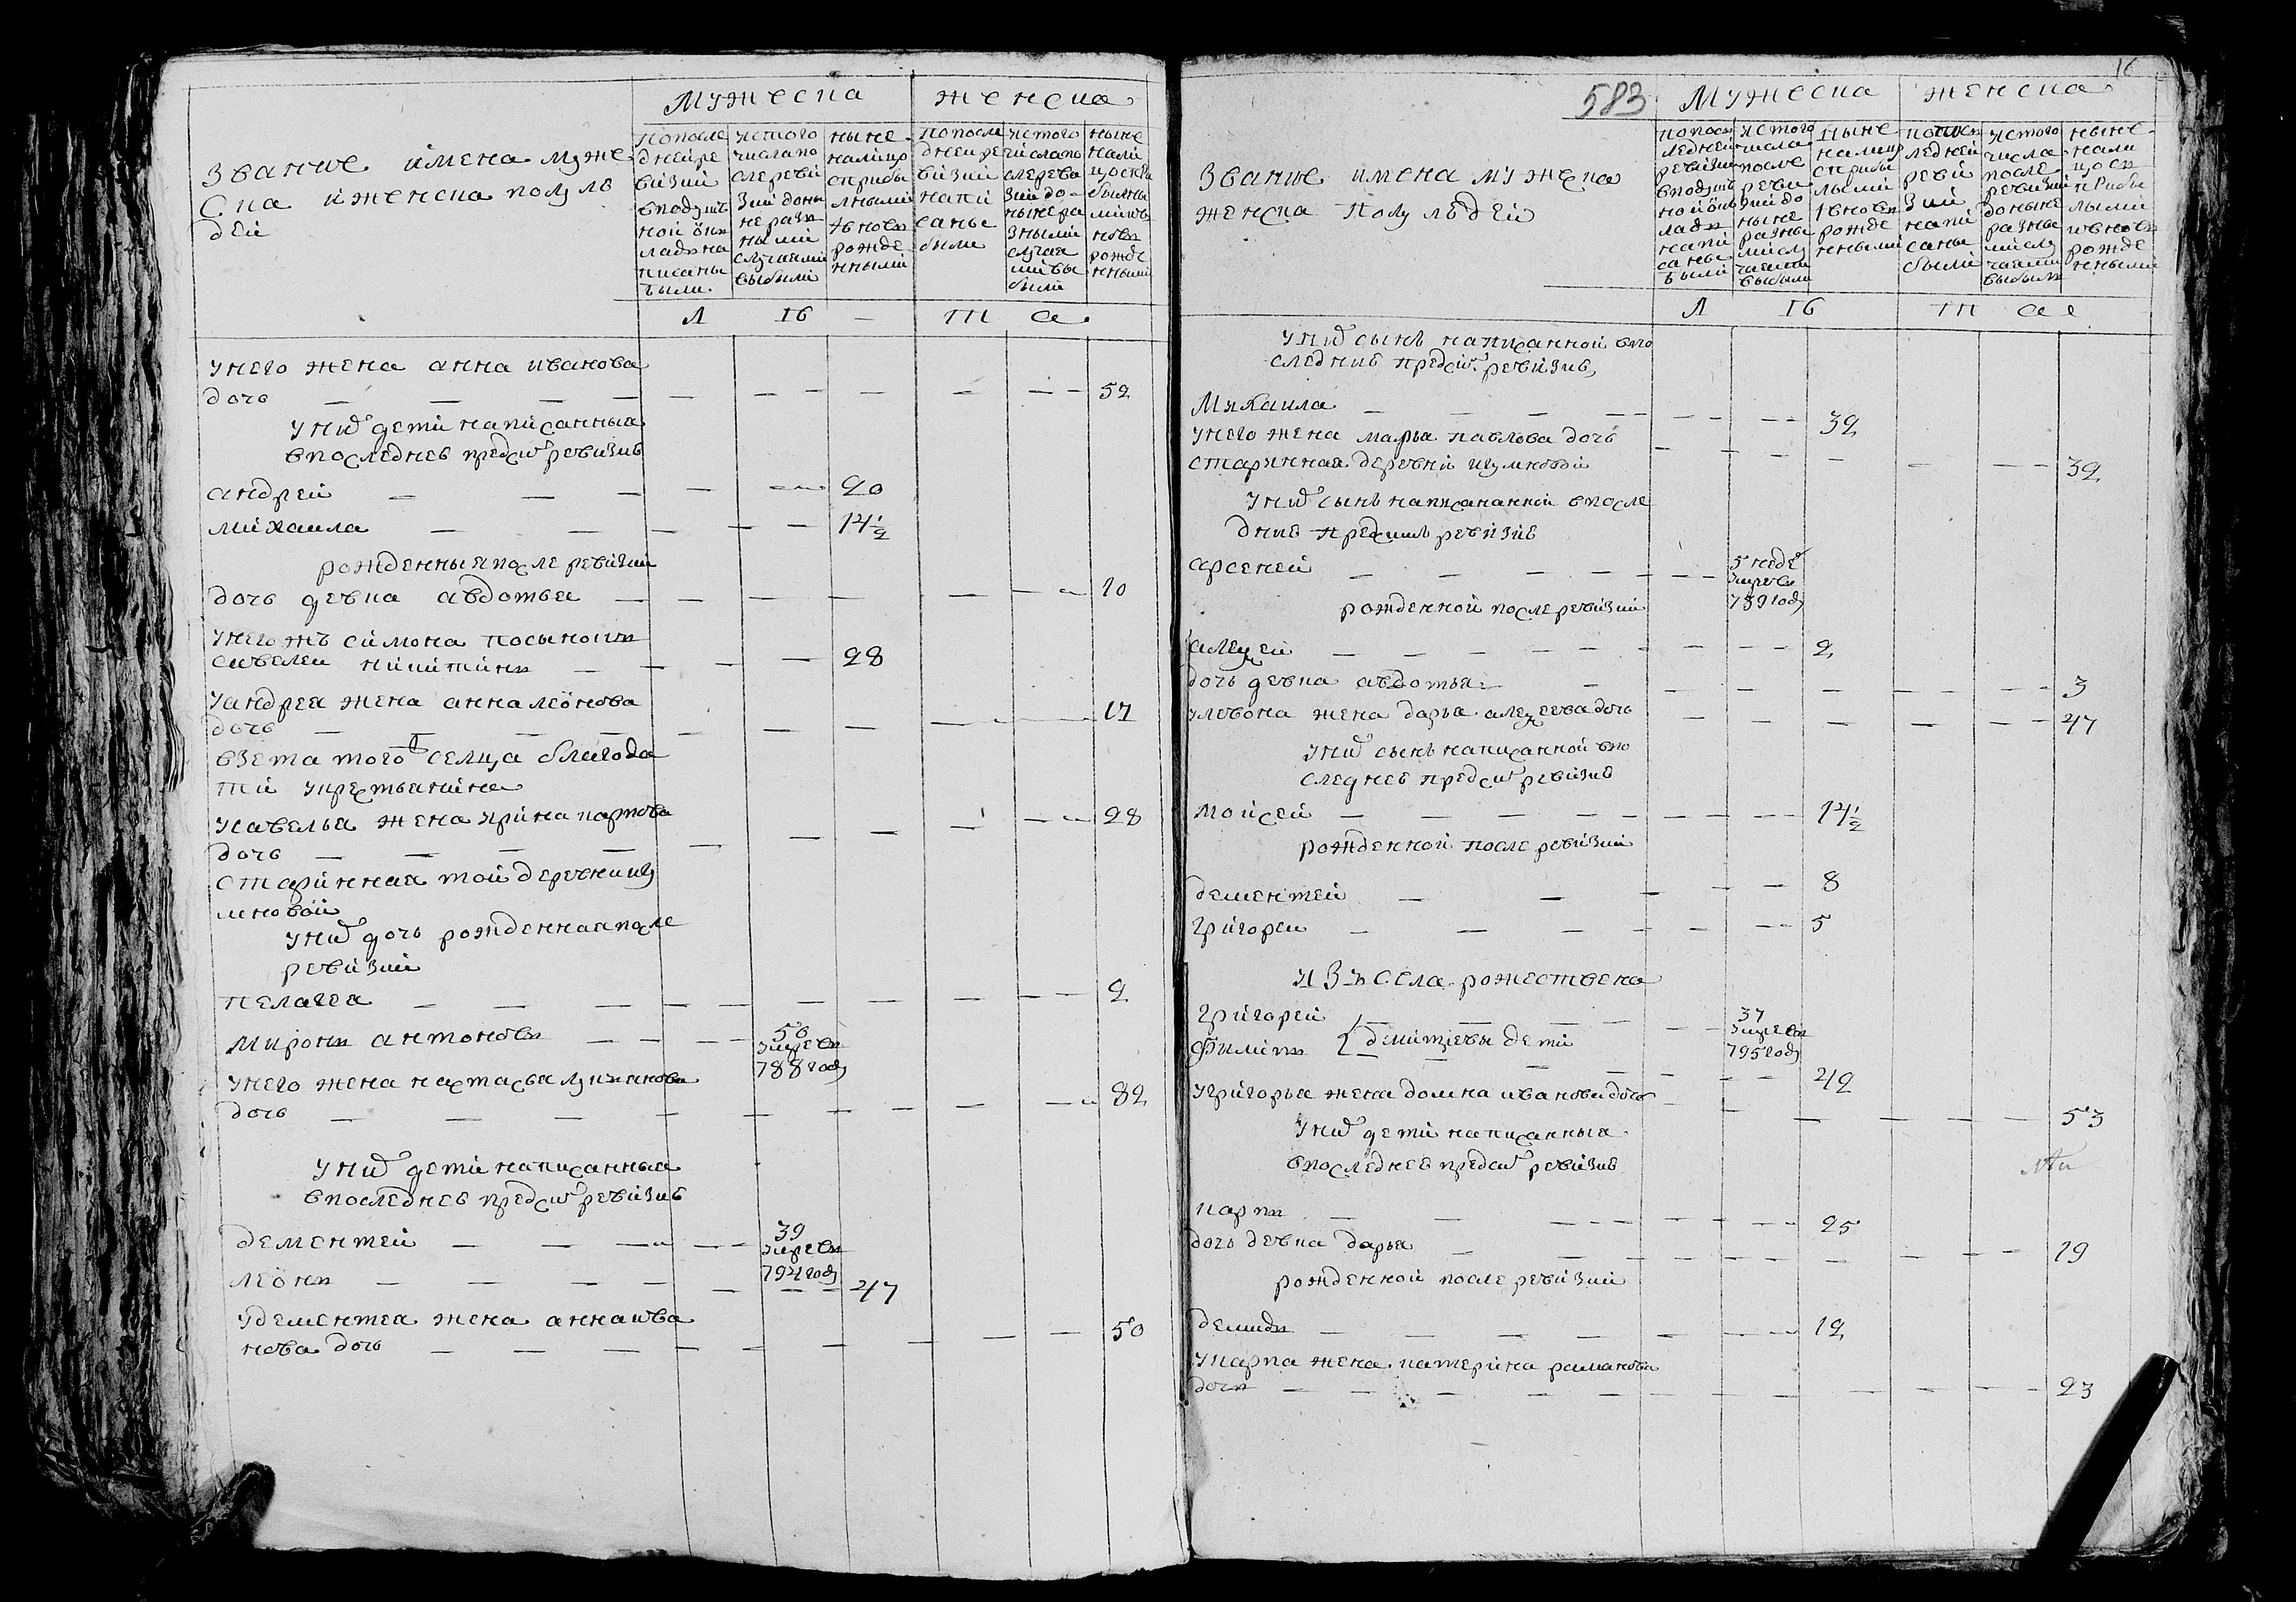 Мужеска
женска
Звание имена муже
ска и женска полу лю
дей
попосле
дней ре
визии
вподуш
ной ок
лад на
писаны
были
ис того
числа по
сле реви
зии доны
не разн
ными
случаями
выбыли
ныне
налицо
с прибы
лыми
и вновь
рожде
нными
попосле
дней ре
визии
напи
саны
были
ис того
числа по
сле реви
зии до
ныне ра
зными
случая
ми вы
были
ныне
нали
цо с при
былы
ми и в
новь
рожде
нными
Л та
у него жена анна иванова
дочь 52
у них дети написанныя
в последнее пред сим ревизие
андрей 20
михаила 14 1/2
рожденныя после ревизии
дочь девка авдотья 10
у него ж симона пасынок
савелей никитин 28
у андрея жена анна леонова
дочь 17
взета того селца благода
ти у крестьянина
у савелья жена ирина карпова 28
дочь
старинная той деревни
у них дочь рожденная после
ревизии
пелагея 2
миронъ антоновъ 56
умре в
788 году
у него жена настасья лукианова
дочь 82
у них дети написанныя
в последнее пред сим ревизие
дементей 39
умре в
794 году
леон 47
у дементея жена анна ива
нова дочь 50
16
583
Мужеска
женска
Звание имена мужеска
женска полу людей
попос
ледней
ревизии
в подуш
ной ок
лад
напи
саны
были
ис того
числа
после
реви
зии до
ныне
разны
ми слу
чаями
выбыли
ныне
налицо
с прибы
лыми
и вновь
рожде
нными
попос
ледней
реви
зии
напи
саны
были
ис того
числа
после
ревизии
до ныне
разны
ми слу
чаями
выбыли
ныне
нали
цо с
прибы
лыми
и вновь
рожде
нными
Л та
у них сынъ написанной в по
следние пред сим ревизие
Михаила 32
у него жена марья павлова дочь
старинная деревни 32
у них сынъ написанной в после
дние пред сим ревизие
арсеней 5 неде
умре в
789 году
рожденной после ревизии
алексей 2
дочь девка авдотья 3
у леона жена дарья алексеева дочь 47
у них сынъ написанной в по
следнее пред сим ревизие
моисей 14 1/2
рожденной после ревизии
дементей 8
григорей 5
изъ села рожествена
григорей 37
умре в
795 году
филипъ дмитриевы дети
42
у григорья жена домна иванова дочь 53
у них дети написанныя
в последнее пред сим ревизие
карпъ 25
дочь девка дарья 19
рожденной после ревизии
демидъ 12
у карпа жена катерина романова
дочь 23